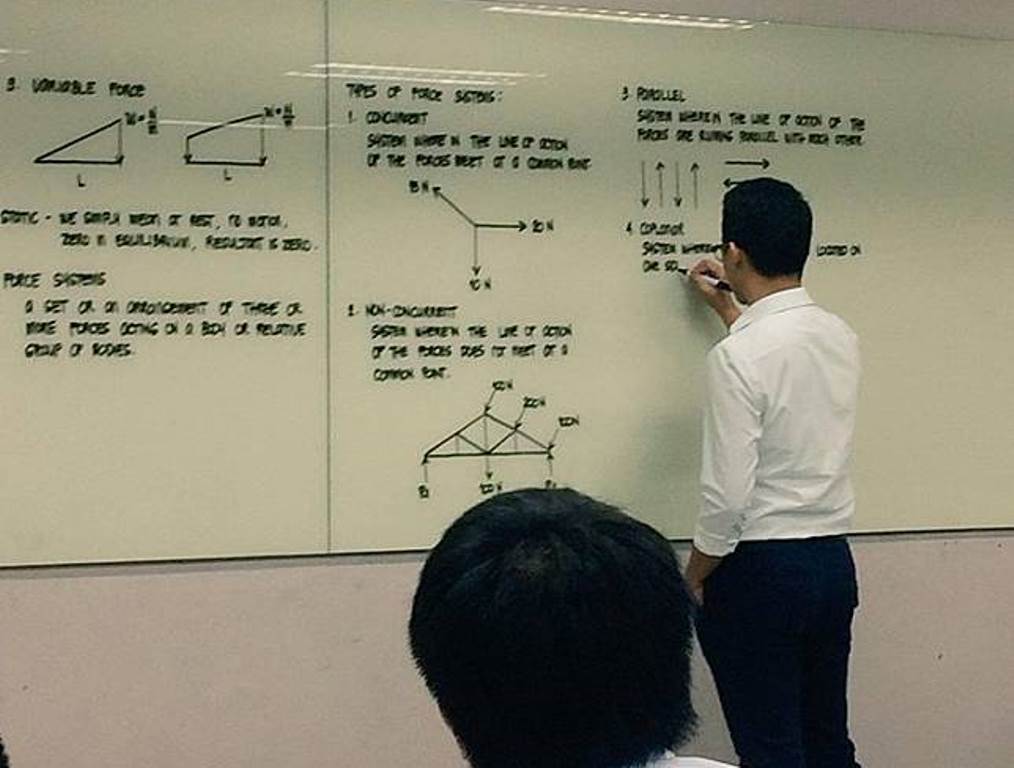 3. VARIABLE FORCE
W = N/M
W = N/M
L
L
STATIC - WE SIMPLY MEAN AT REST, NO MOTION,
ZERO IN EQUILIBRIUM, RESULTANT IS ZERO.
FORCE SYSTEMS
A SET OR AN ARRANGEMENT OF THREE OR
MORE FORCES ACTING ON A BODY OR RELATIVE
GROUP OF BODIES.
TYPES OF FORCE SYSTEMS:
1. CONCURRENT
SYSTEM WHERE IN THE LINE OF ACTION
OF THE FORCES MEET AT A COMMON POINT
15 N
20 N
10 N
2. NON-CONCURRENT
SYSTEM WHERE IN THE LINE OF ACTION
OF THE FORCES DOES NOT MEET AT A
COMMON POINT.
100 N
200 N
100 N
R1
100 N
3. PARALLEL
SYSTEM WHERE IN THE LINE OF ACTION OF THE
FORCES ARE RUNNING PARALLEL WITH EACH OTHER.
4. COPLANAR
SYSTEM LOCATED ON
ONE